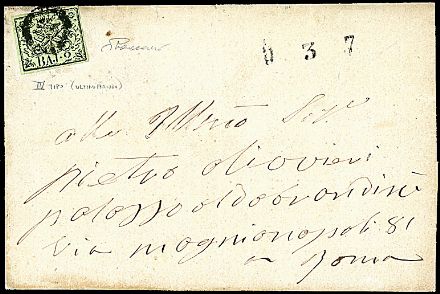 BAJ 2
3 7
III TIPO (ULTIMO PERIODO)
alla Illmo Sig.
pietro olivieri
palazzo aldobrandini
via magnianapoli 81
a Roma